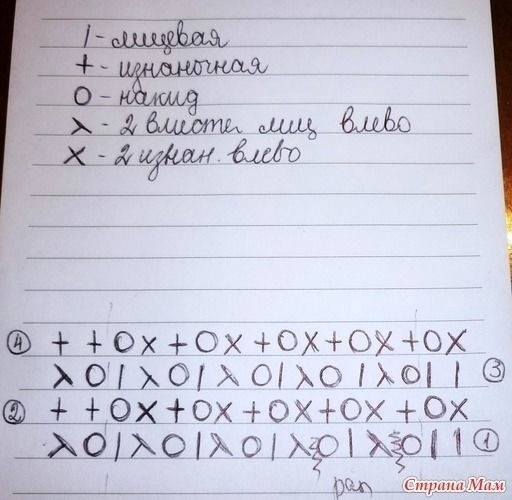 | - лицевая
+ - изнаночная
O - накид
λ - 2 вместе лиц влево
x - 2 изнан. влево
④ + + O x + O x + O x + O x + O x
λ O | λ O | λ O | λ O | λ O | | ③
② + + O x + O x + O x + O x + O x
λ O | λ O | λ O | λ O | λ O | | ①
рап
Страна Мам